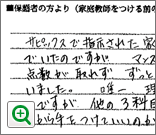 ■保護者の方より(家庭教師をつける前の
サピックスで指示された家
でいたのですが。マンス
点数が取れず、ずっと
いました。唯一理
ですが他の3科目
から手をつけていいのか